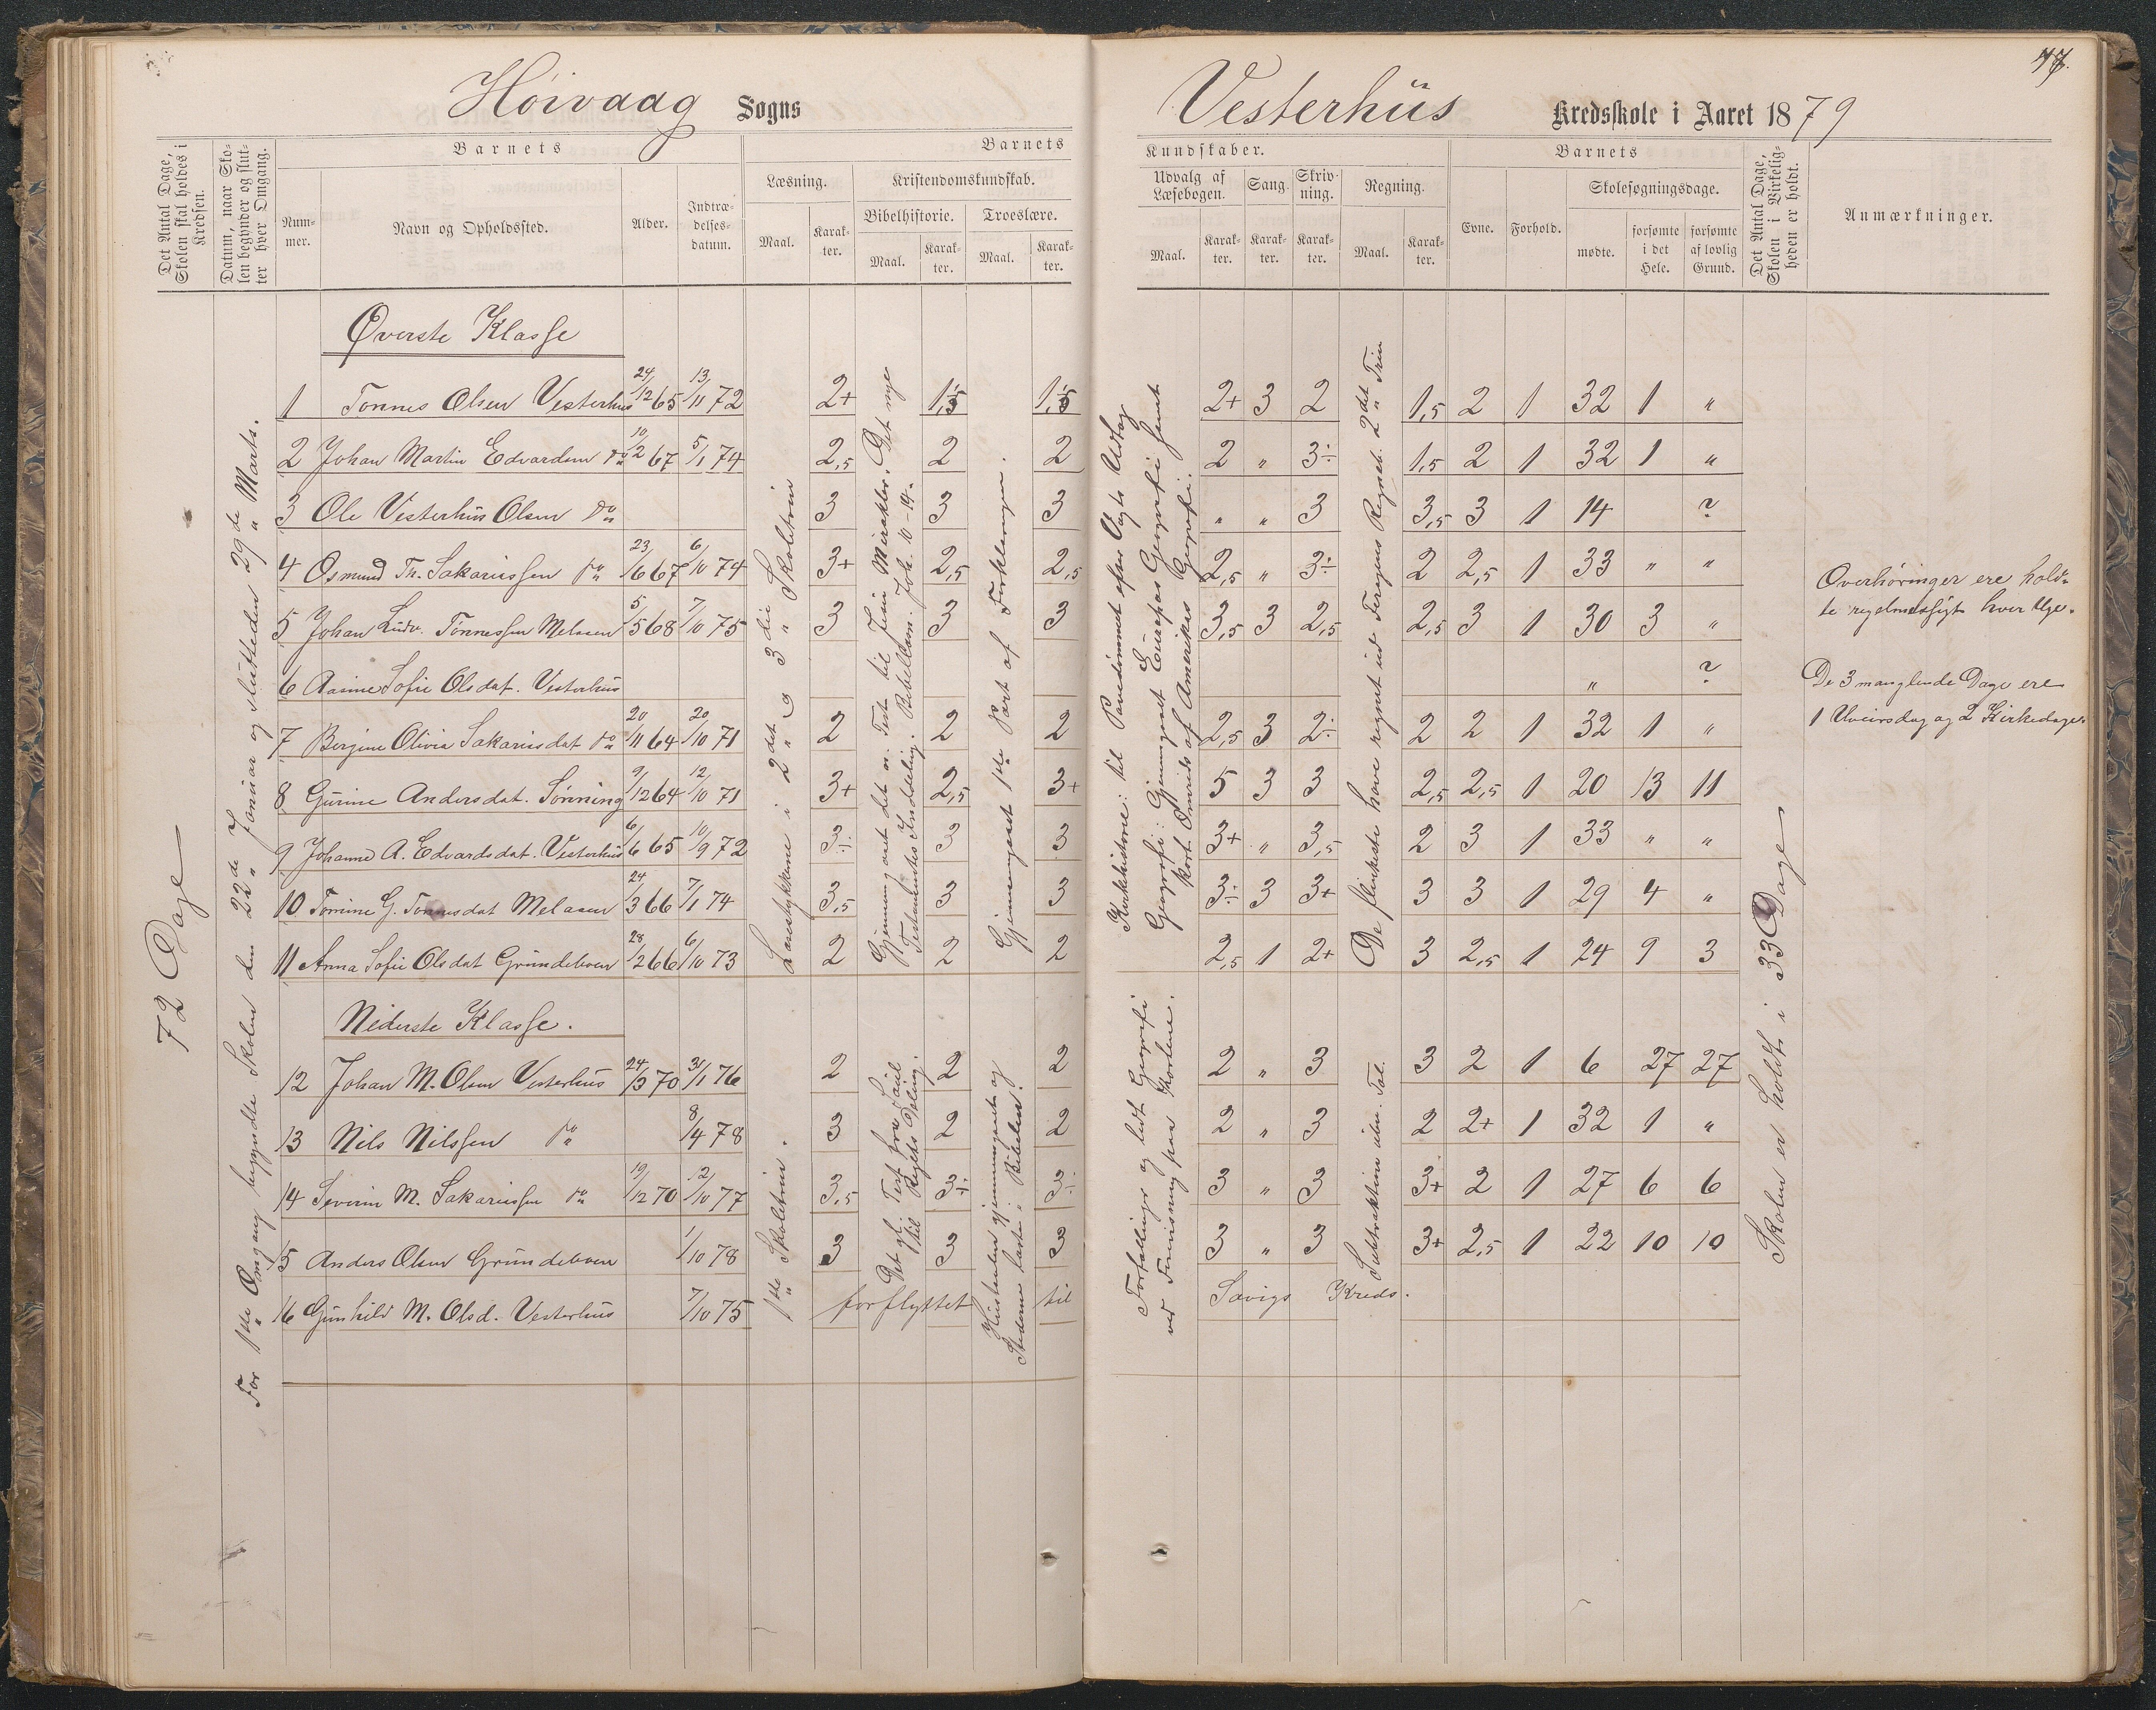 77.
Høivaag Sogns
Vesterhüs Kredsskole i Aaret 1879
Det Antal Dage, Skolen skal holdes i Kredsen.
Datum, naar Skolen begynder og slutter hver Omgang.
Barnets
Nummer.
Navn og Opholdssted.
Alder.
Indtrædelsesdatum.
Barnets
Læsning.
Maal.
Karakter.
Kristendomskundskab.
Bibelhistorie.
Maal.
Karakter.
Troeslære.
Maal.
Karakter.
Kundskaber.
Udvalg af Læsebogen.
Maal.
Karakter.
Sang.
Karakter.
Skrivning.
Karakter.
Regning.
Maal.
Karakter.
Barnets
Evne.
Forhold.
Skolesøgningsdage.
mødte.
forsømte i det Hele.
forsømte af lovlig Grund.
Det Antal Dage, Skolen i Virkeligheden er holdt.
Anmærkninger.
72 Dage
For 1ste Omgang begyndte Skolen den 22de Januar og sluttedes 29de Marts.
Øverste Klasse
1 Tønnes Olsen Vesterhus 24/12 65 13/11 72 2+ 1,5 1,5 2+ 3 2 1,5 2 1 32 1 "
2 Johan Martin Edvardsen do 10/2 67 5/1 74 2,5 2 2 2 " 3÷ 1,5 2 1 32 1 "
3 Ole Vesterhus Olsen do 3 3 3 " " 3 3,5 3 1 14 ?
4 Osmund Th. Sakariassen do 23/6 67 6/10 74 3+ 2,5 2,5 2,5 " 3÷ 2 2,5 1 33 " "
5 Johan Ludv. Tønnessen Melaasen 5/5 68 7/10 75 3 3 3 3,5 3 2,5 2,5 3 1 30 3 "
6 Aasine Sofie Olsdat. Vesterhus " ?
7 Bergine Olivia Sakariasdat do 20/11 64 20/10 71 2 2 2 2,5 3 2÷ 2 2 1 32 1 "
8 Gurine Andersdat. Sønning 9/12 64 12/10 71 3+ 2,5 3+ 5 3 3 2,5 2,5 1 20 13 11
9 Johanne A. Edvardsdat. Vesterhus 6/6 65 10/9 72 3÷ 3 3 3+ " 3,5 2 3 1 33 " "
10 Tomine G. Tønnesdat Melaasen 24/3 66 7/1 74 3,5 3 3 3÷ 3 3+ 3 3 1 29 4 "
11 Anna Sofie Olsdat Grundeboen 28/2 66 6/10 73 2 2 2 2,5 1 2+ 3 2,5 1 24 9 3
Læsestykkerne i 2det og 3die Skoletrin
Gjennemgaaet det n. Test. til Jesu Mirakler. Det nye Testamentes Inddeling. Bibellæsn. Joh. 10-14.
Gjennemgaaet 1ste Part af Forklaringen.
Kirkehistorie: til Pavedømmet efter Vogts Udtog
Geografi: Gjennemgaaet Europas Geografi samt kort Omrids af Amerikas Geografi.
De flinkeste have regnet ud Fergens Regneb. 2det Trin
Nederste Klasse.
12 Johan M. Olsen Vesterhus 24/3 70 31/1 76 2 2 2 2 " 3 3 2 1 6 27 27
13 Nils Nilssen do 8/4 78 3 2 2 2 " 3 2 2+ 1 32 1 "
14 Severin M. Sakariassen do 19/12 70 12/10 77 3,5 3÷ 3÷ 3 " 3 3+ 2 1 27 6 6
15 Anders Olsen Grundeboen 1/10 78 3 3 3 3 " 3 3+ 2,5 1 22 10 10
16 Gunhild M. Olsd. Vesterhus 7/10 75 forflyttet til Savigs Kreds.
1ste Skoletrin.
Det gl. Test. fra Saul til Rigets Deling.
Hustavlen gjennemgaaet og Stederne læste i Bibelen.
Fortællinger og lidt Geografi ved Forevisning paa Kortene.
Subtraktion üben. Tal.
Skolen er holdt i 33 Dage
Overhøringer ere holdte regelmæssigt hver Uge.
De 3 manglende Dage ere
1 Uveirsdag og 2 Kirkedage.